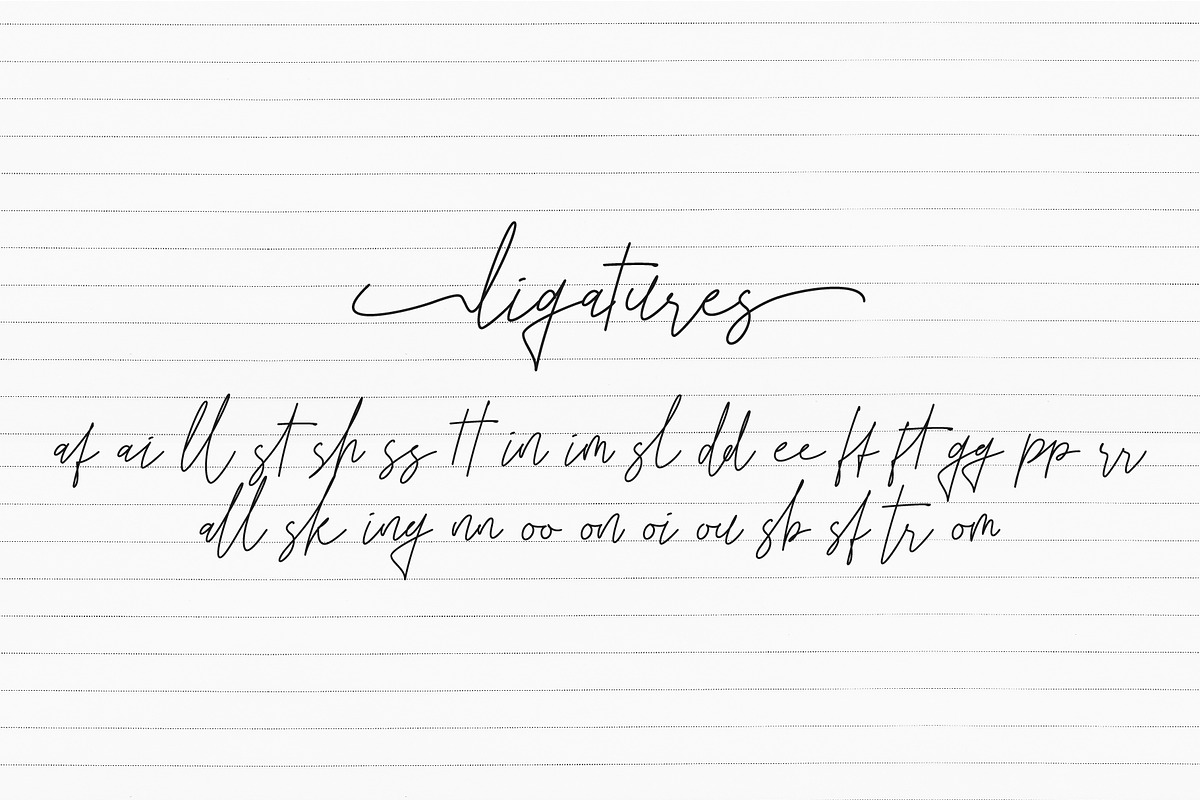 ligatures
af ai ll st sh ss tt in im sl dd ee ff ft gg pp rr
all sk ing nn oo on oi ou sb sf tr om